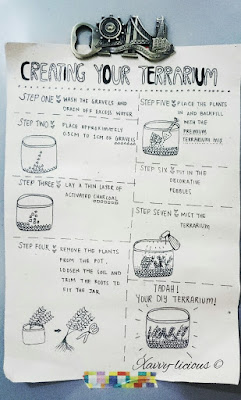 CREATING YOUR TERRARIUM
STEP ONE WASH THE GRAVELS AND
DRAIN OFF EXCESS WATER
STEP TWO PLACE APPROXIMATELY
0.5CM TO 1CM OF GRAVELS
STEP THREE LAY A THIN LAYER OF
ACTIVATED CHARCOAL
STEP FOUR REMOVE THE PLANTS
FROM THE POT,
LOOSEN THE SOIL AND
TRIM THE ROOTS TO
FIT THE JAR
STEP FIVE PLACE THE PLANTS
IN AND BACKFILL
WITH THE
PREMIUM
TERRARIUM MIX
STEP SIX PUT IN THE
DECORATIVE
PEBBLES
STEP SEVEN MIST THE
TERRARIUM
TADAH!
YOUR DIY TERRARIUM!
Xavvy-licious ©